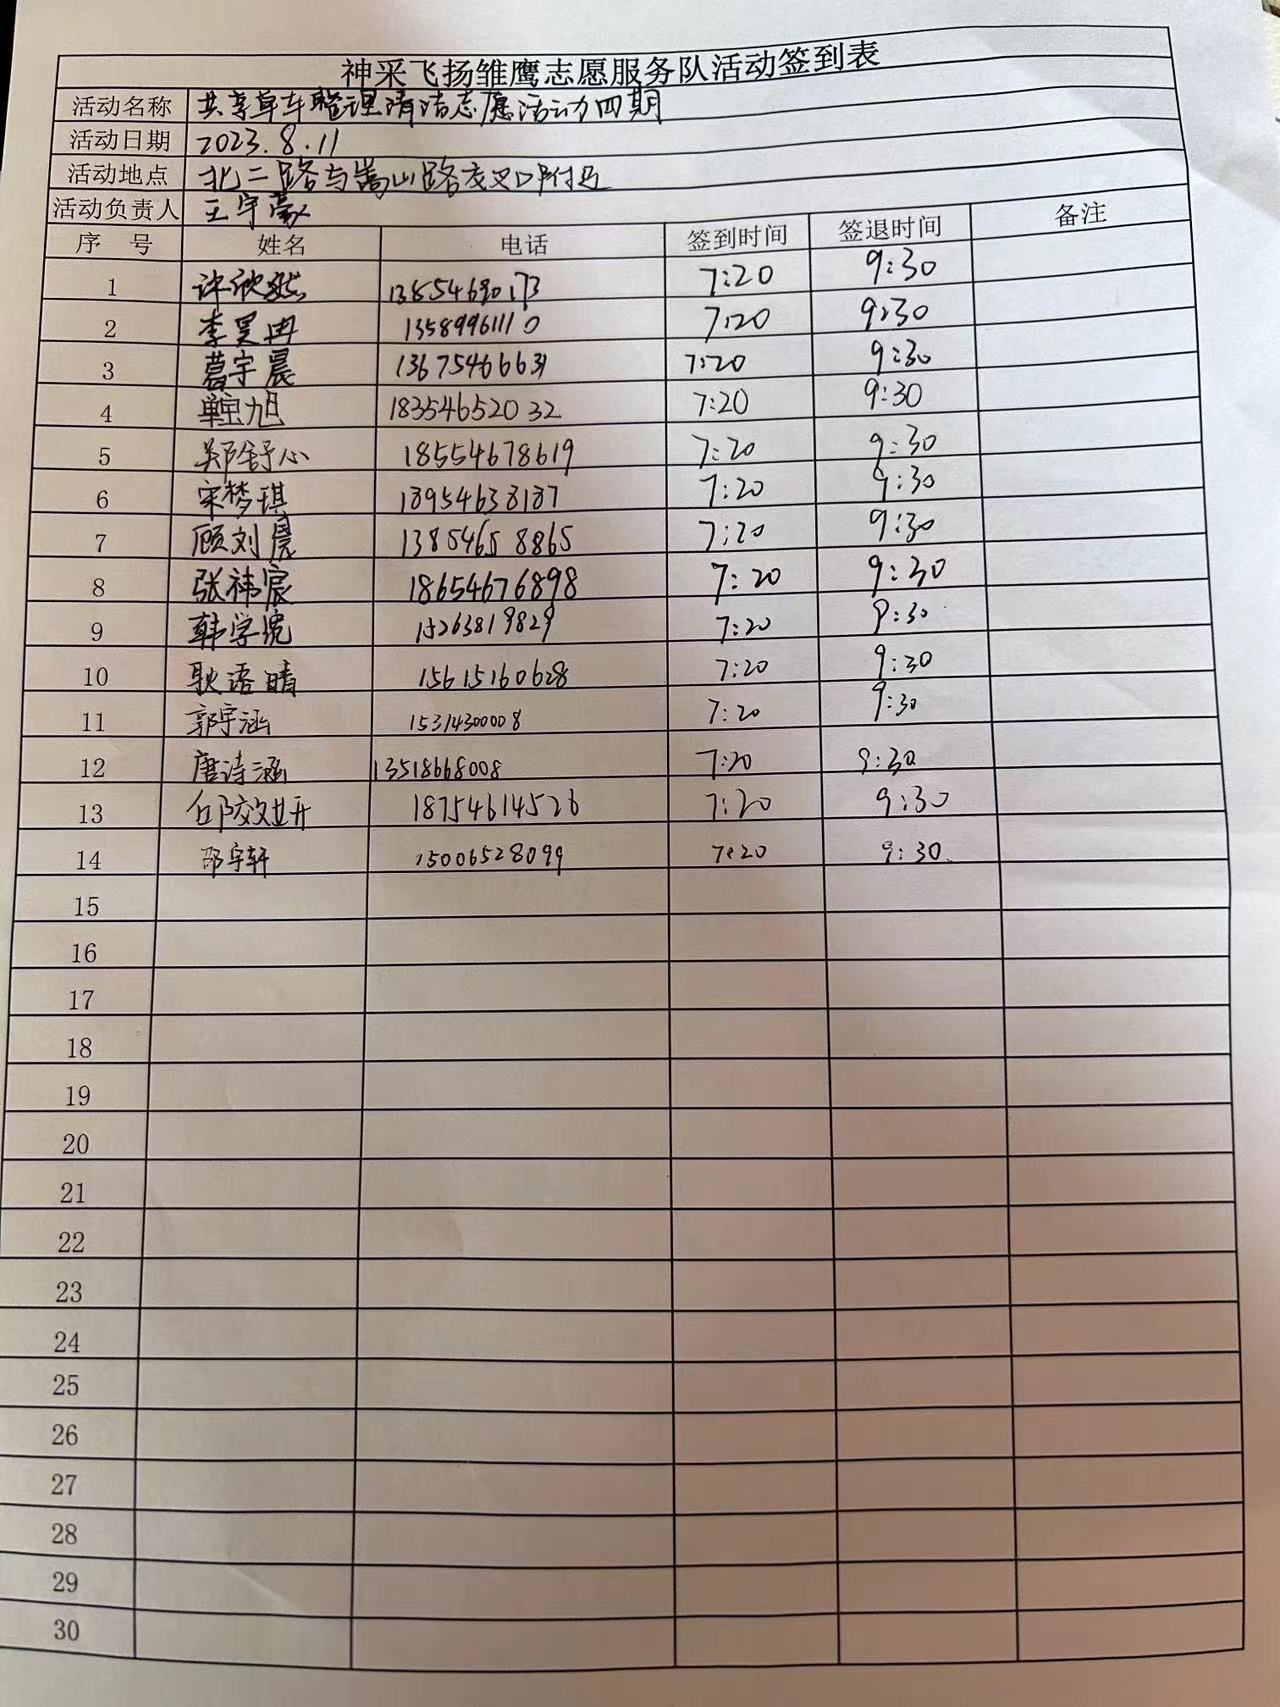 神采飞扬雏鹰志愿服务队活动签到表
活动名称 共享单车整理清洁志愿活动四期
活动日期 2023.8.11
活动地点 北二路与嵩山路交叉口附近
活动负责人 王宇豪
序 号 姓名 电话 签到时间 签退时间 备注
1 许欣然 13854690173 7:20 9:30
2 李昊冉 13589961110 7:20 9:30
3 葛宇晨 13675466631 7:20 9:30
4 18354652032 7:20 9:30
5 郑舒心 18554678619 7:20 9:30
6 宋梦琪 18954638187 7:20 9:30
7 顾刘晨 13854658865 7:20 9:30
8 张祎宸 18654676898 7:20 9:30
9 韩学 15263819829 7:20 9:30
10 耿语晴 15615160628 7:20 9:30
11 郭宇涵 15314300008 7:20 9:30
12 唐诗涵 13518668008 7:20 9:30
13 18754614526 7:20 9:30
14 邵宇轩 15006528099 7:20 9:30
15
16
17
18
19
20
21
22
23
24
25
26
27
28
29
30